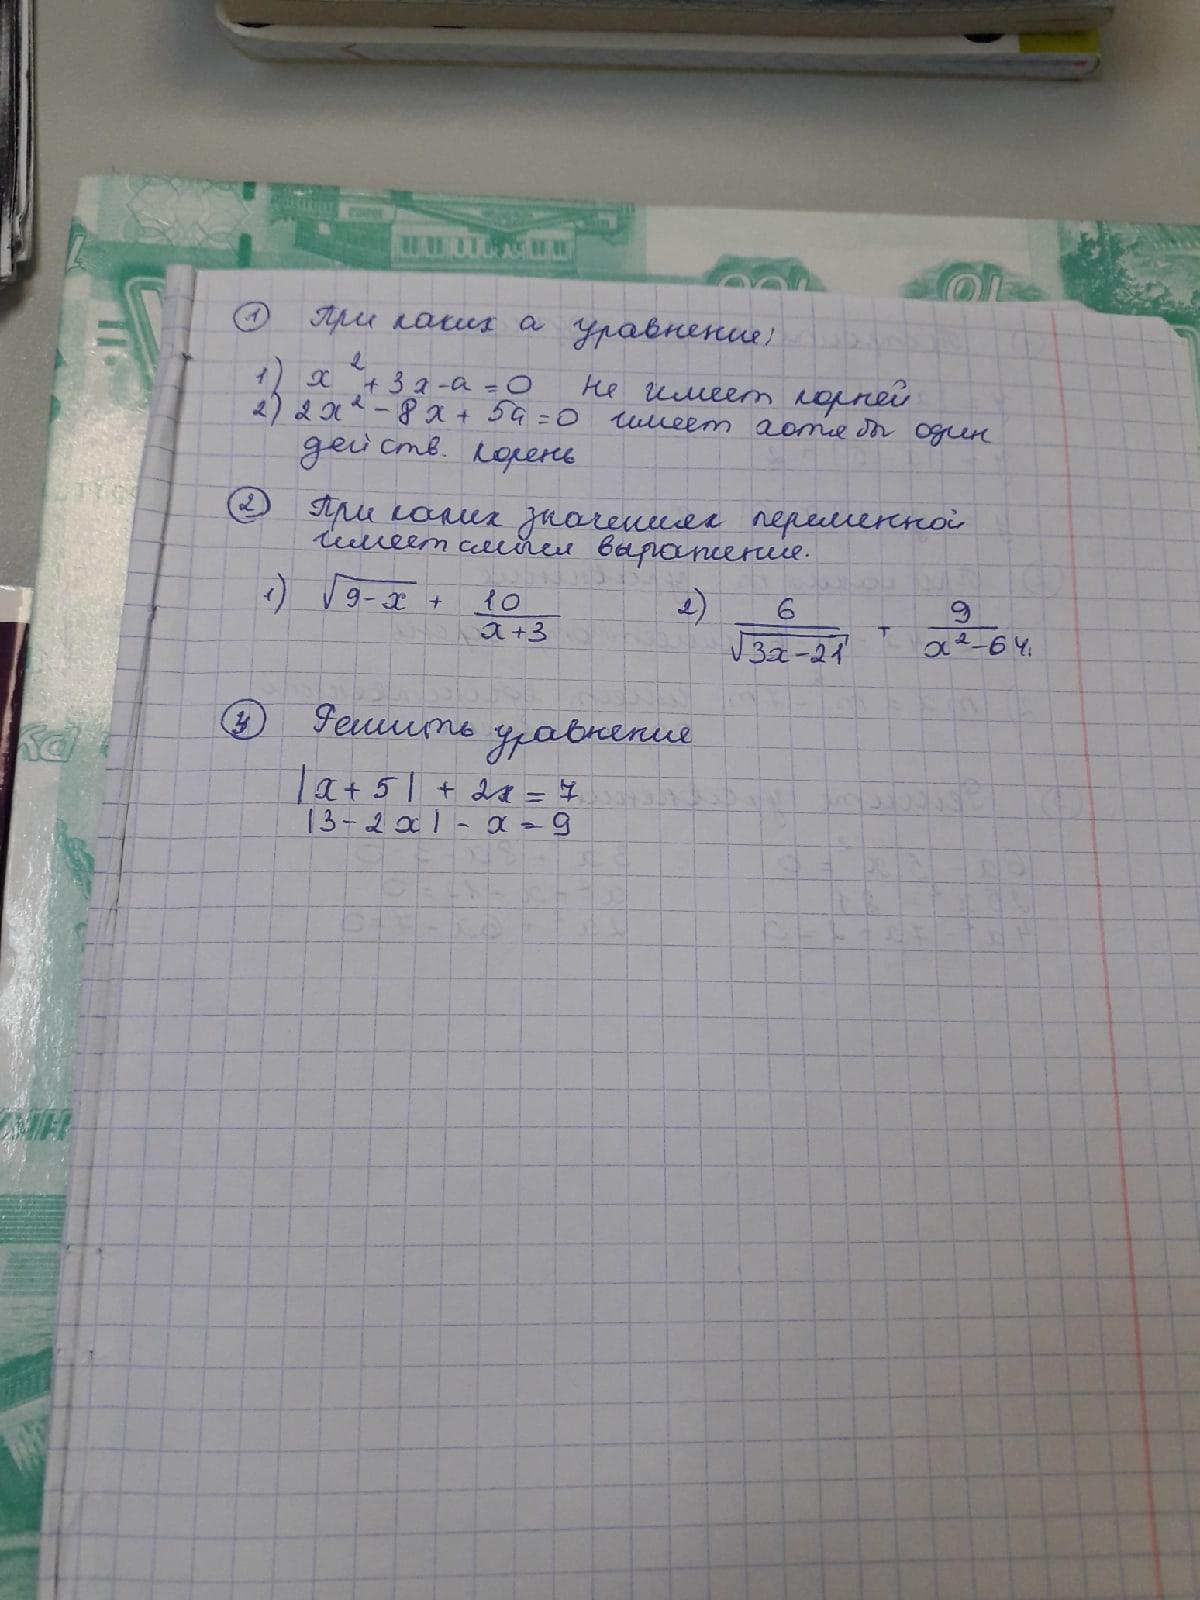 ① При каких а уравнение:
1) x² + 3x - a = 0 Не имеет корней
2) 2x² - 8x + 5a = 0 имеет хотя бы один
действ. корень
② При каких значениях переменной
имеет смысл выражение.
1) √(9-x) + 10/(x+3) 2) 6/√(3x-21) + 9/(x²-64).
Решить уравнение
|x+5| + 2x = 7
|3-2x| - x = 9